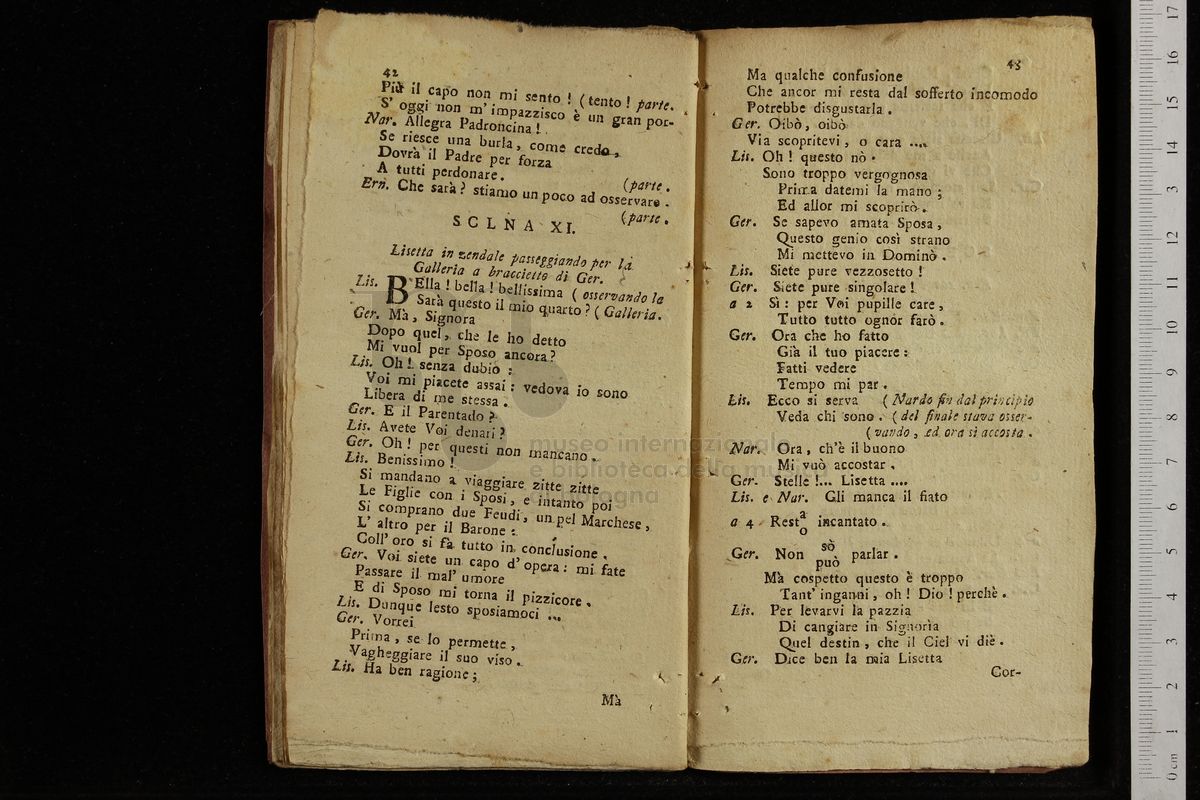 42
Più il capo non mi sento ! ( tento ! parte.
S' oggi non m' impazzisco è un gran por-
Nar. Allegra Padroncina !
Se riesce una burla, come credo,
Dovrà il Padre per forza
A tutti perdonare. (parte.
Ern. Che sarà ? stiamo un poco ad osservare.
(parte.
SCLNA XI.
Lisetta in zendale passeggiando per la
Galleria a braccietto di Ger.
Lis. BElla ! bella ! bellissima ( osservando la
Sarà questo il mio quarto ? ( Galleria.
Ger. Mà, Signora
Dopo quel, che le ho detto
Mi vuol per Sposo ancora ?
Lis. Oh ! senza dubio :
Voi mi piacete assai : vedova io sono
Libera di me stessa.
Ger. E il Parentado ?
Lis. Avete Voi denari ?
Ger. Oh ! per questi non mancano.
Lis. Benissimo !
Si mandano a viaggiare zitte zitte
Le Figlie con i Sposi, e intanto poi
Si comprano due Feudi, un pel Marchese,
L' altro per il Barone :
Coll' oro si fa tutto in conclusione.
Ger. Voi siete un capo d' opera : mi fate
Passare il mal' umore
E di Sposo mi torna il pizzicore.
Lis. Dunque lesto sposiamoci ...
Ger. Vorrei
Prima, se lo permette,
Vagheggiare il suo viso.
Lis. Ha ben ragione ;
Mà
43
Ma qualche confusione
Che ancor mi resta dal sofferto incomodo
Potrebbe disgustarla.
Ger. Oibò, oibò
Via scopritevi, o cara ....
Lis. Oh ! questo nò.
Sono troppo vergognosa
Prima datemi la mano ;
Ed allor mi scoprirò.
Ger. Se sapevo amata Sposa,
Questo genio così strano
Mi mettevo in Dominò.
Lis. Siete pure vezzosetto !
Ger. Siete pure singolare !
a 2 Sì : per Voi pupille care,
Tutto tutto ognor farò.
Ger. Ora che ho fatto
Già il tuo piacere :
Fatti vedere
Tempo mi par.
Lis. Ecco si serva ( Nardo fin dal principio
Veda chi sono. ( del finale stava osser-
( vando, ed ora si accosta.
Nar. Ora, ch'è il buono
Mi vuò accostar.
Ger. Stelle !... Lisetta ....
Lis. e Nar. Gli manca il fiato
a 4 Rest a
o incantato.
Ger. Non sò
può parlar.
Mà cospetto questo è troppo
Tant' inganni, oh ! Dio ! perchè.
Lis. Per levarvi la pazzia
Di cangiare in Signorìa
Quel destin, che il Ciel vi diè.
Ger. Dice ben la mia Lisetta
Cor-
museo internazionale
e biblioteca della musica
di bologna
0 cm 1 2 3 4 5 6 7 8 9 10 11 12 13 14 15 16 17